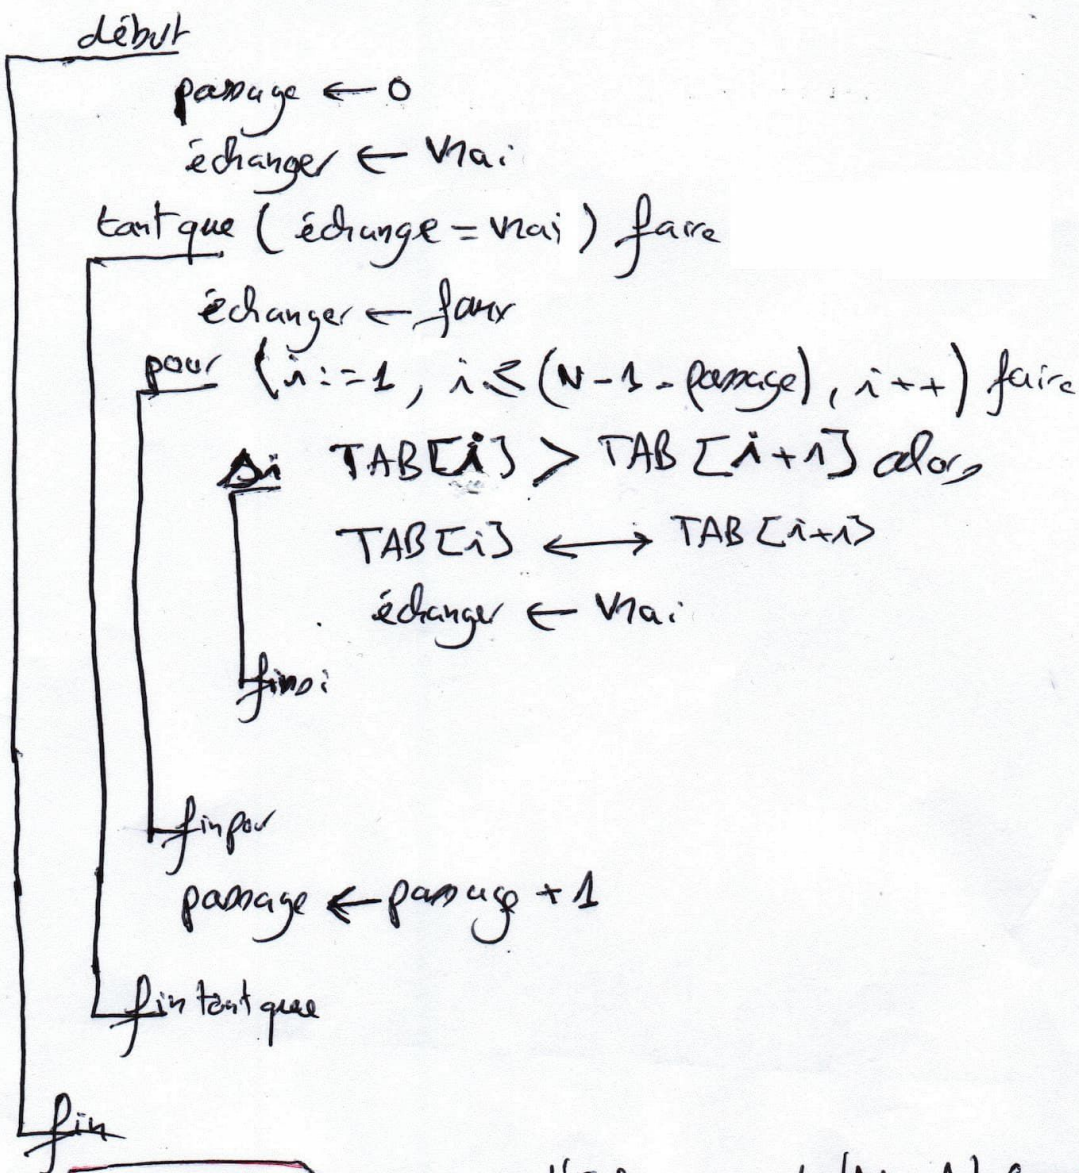 début
passage ← 0
échanger ← vrai
tant que ( échange = vrai ) faire
échanger ← faux
pour ( i := 1 , i ≤ (N - 1 - passage) , i ++ ) faire
si TAB[i] > TAB [i+1] alors
TAB[i] ←→ TAB [i+1]
échanger ← vrai
finsi
finpour
passage ← passage + 1
fin tant que
fin